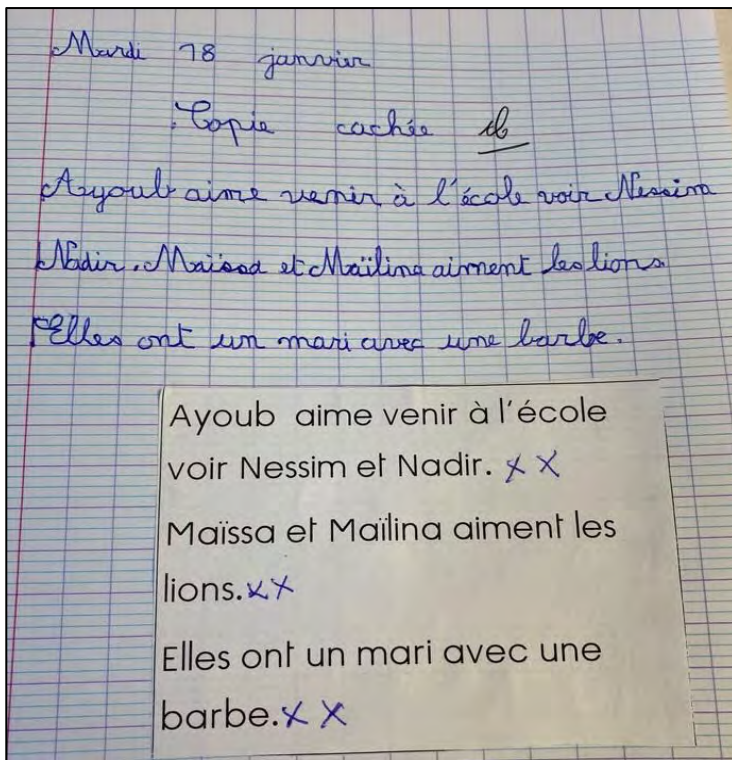 Mardi 18 janvier
Copie cachée
Ayoub aime venir à l'école voir Nessim
Nadir. Maïssa et Maïlina aiment les lions.
Elles ont un mari avec une barbe.
Ayoub aime venir à l'école
voir Nessim et Nadir. x x
Maïssa et Maïlina aiment les
lions. x x
Elles ont un mari avec une
barbe. x x